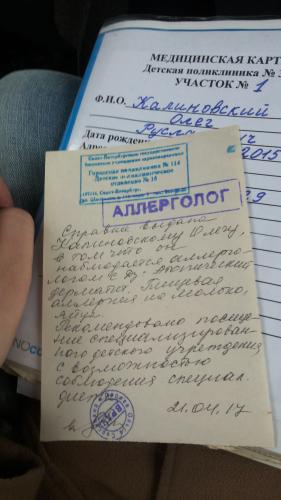 МЕДИЦИНСКАЯ КАРТ
Детская поликлиника №
УЧАСТОК № 1
Ф.И.О. Калиновский
Олег
Дата рожден
2015
Городская поликлиника № 114
Детское поликлиническое
отделение № 16
АЛЛЕРГОЛОГ
Справка выдана
Калиновскому Олегу,
в том что он
наблюдается аллерго-
логом с Дз: Атопический
дерматит. Пищевая
аллергия на молоко,
яйца.
Рекомендовано посеще-
ние специализирован-
ного детского учреждения
с возможностью
соблюдения специал.
диеты
21.04.17
ВРАЧ